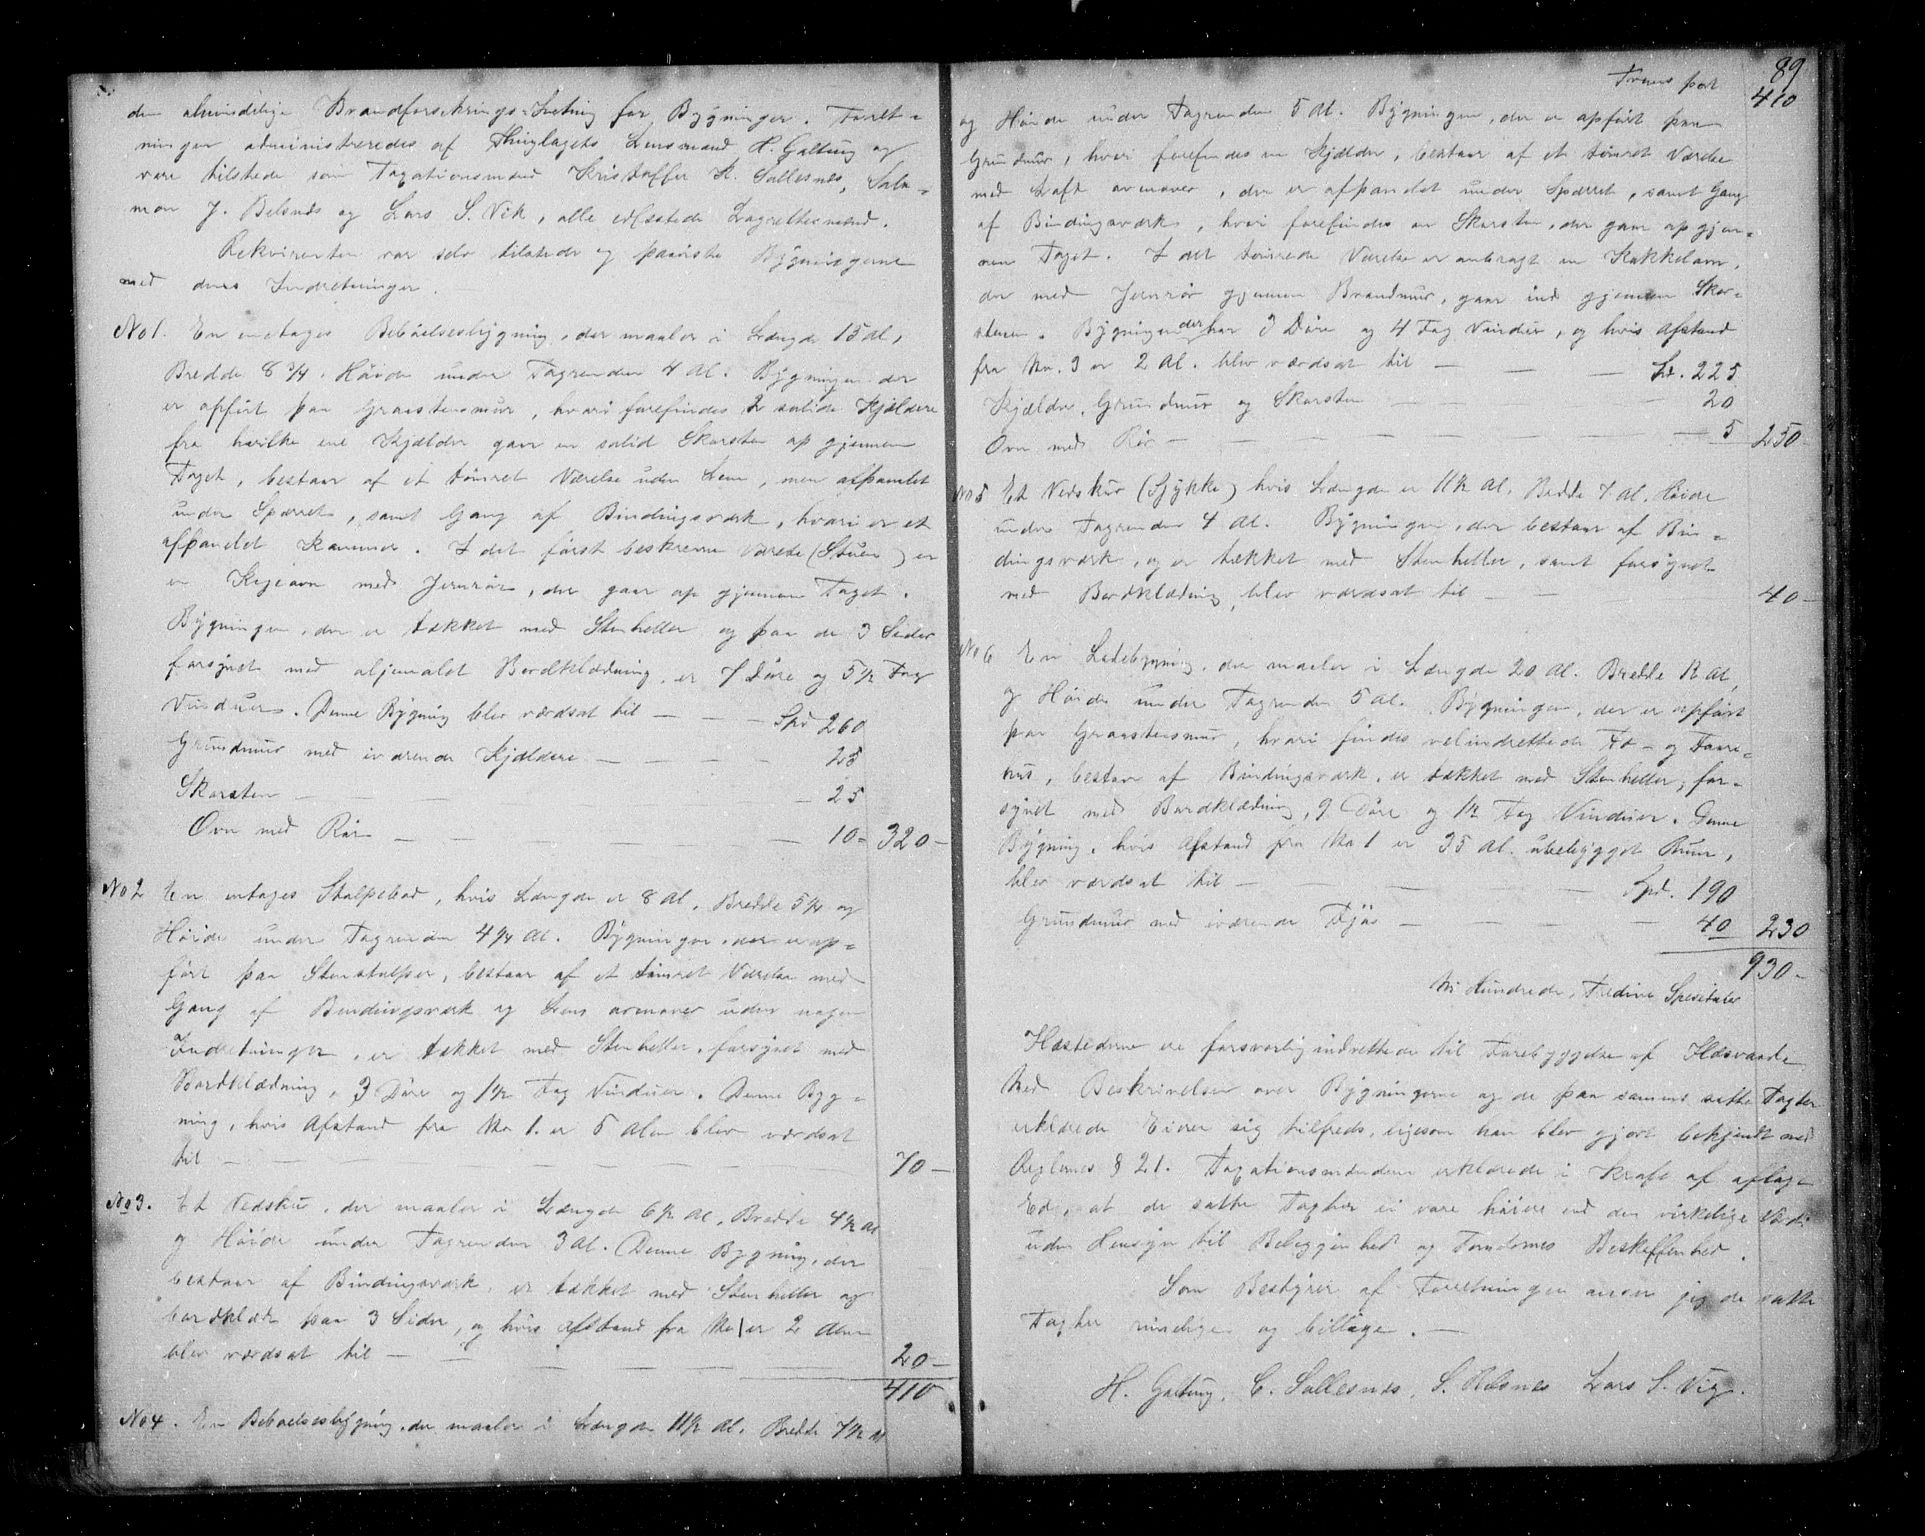 den almindelige Brandforsikrings-Indretning for Bygninger. Forret-
ningen administreredes af Thinglagets Lensmand H. Galtung og
vare tilstede som Taxationsmænd Kristoffer K. Sallesnes, Salo-
mon J. Belsnes og Lars S. Vik, alle edfæstede Lagrettesmænd.
Rekvirenten var selv tilstede og paaviste Bygningerne
med deres Indretninger.
No 1. En enetages Beboelsesbygning, der maaler i Længde 15 Al,
Bredde 8 3/4. Høide under Tagrenden 4 Al. Bygningen der
er opført paa Graastensmur, hvori forefindes 2 solide Kjældere
fra hvilke ene Kjælder gaar en solid Skorsten op gjennem
Taget, bestaar af et tømret Værelse uden Lem, men afpanelet
under Sperret, samt Gang af Bindingsværk, hvori er et
afpanelet Kammer. I det først beskrevne Værelse (Stuen) er
en Kogeovn med Jernrør, der gaar op gjennem Taget.
Bygningen, der er tækket med Stenheller og paa de 3 Sider
forsynet med oljemalet Bordklædning, er 7 Døre og 5 1/2 Fag
Vinduer. Denne Bygning blev værdsat til — — — Spd 260
Grundmur med iværende Kjældere — — — — 25
Skorsten — — — — 25
Ovn med Rør — — — — 10 - 320 -
No 2 En entages Stolpebod, hvis Længde er 8 Al, Bredde 5 1/4 og
Høide under Tagrenden 4 1/4 Al. Bygningen, der er op-
ført paa Stenstolper, bestaar af et tømret Værelse med
Gang af Bindingsværk og Lem ovenover uden nogen
Indretninger, er tækket med Stenheller, forsynet med
Bordklædning, 3 Døre og 1 1/2 Fag Vinduer. Denne Byg-
ning, hvis Afstand fra No 1. er 5 Alen blev værdsat
til — — — — — 70 —
No 3. Et Vedskur, der maaler i Længde 6 1/2 Al, Bredde 4 1/2 Al
og Høide under Tagrenden 3 Al. Denne Bygning, der
bestaar af Bindingsværk, er tækket med Stenheller og
bordklædt paa 3 Sider, og hvis Afstand fra No 1 er 2 Alen
blev værdsat til — — — — 20 —
410
No 4. En Beboelsesbygning, der maaler i Længde 11 1/2 Al. Bredde 7 1/2 Al
89
Transport 410
og Høide under Tagrenden 5 Al. Bygningen, der er opført paa
Grundmur, hvori forefindes en Kjælder, bestaar af et tømret Værelse
med Loft ovenover, der er afpanelet under Sperret, samt Gang
af Bindingsværk, hvori forefindes en Skorsten, der gaar op gjen-
nem Taget. I det tømrede Værelse er anbragt en Kakkelovn,
der med Jernrør gjennem Brandmur, gaar ind gjennem Skor-
stenen. Bygningen der har 3 Døre og 4 Fag Vinduer, og hvis Afstand
fra No. 3 er 2 Al. blev værdsat til — — — Spd. 225
Kjælder, Grundmur og Skorsten — — — 20
Ovn med Rør — — — — — 5 250 -
No 5 Et Vedskur (Skykke) hvis Længde er 11 1/2 Al, Bredde 7 Al. Høide
under Tagrenden 4 Al. Bygningen, der bestaar af Bin-
dingsværk, og er tækket med Stenheller, samt forsynet
med Bordklædning, blev værdsat til — — 40 —
No 6 En Ladebygning, der maaler i Længde 20 Al. Bredde 12 Al,
og Høide under Tagrenden 5 Al. Bygningen, der er opført
paa Graastensmur, hvori findes velindrettede Fæ- og Faare-
hus, bestaar af Bindingsværk, er tækket med Stenheller, for-
synet med Bordklædning, 9 Døre og 1 1/2 Fag Vinduer. Denne
Bygning, hvis Afstand fra No 1 er 35 Al. ubebygget Rum,
blev værdsat til — — — — Spd. 190
Grundmur med iværende Fjøs — — — 40 230
930 -
Ni Hundrede, Tredive Speciedaler
Ildstederne ere forsvarlig indrettede til Forebyggelse af Ildsvaade
Med Beskrivelsen over Bygningerne og de paa samme satte Taxter
erklærede Eieren sig tilfreds, ligesom han blev gjort bekjendt med
Reglernes § 21. Taxationsmændene erklærede i Kraft af aflagt
Ed, at de satte Taxter ei vare høiere end den virkelige Værdi
uden Hensyn til Beliggenhed og Tomternes Beskaffenhed.
Som Bestyrer af Forretningen anser jeg de satte
Taxter rimelige og billige. —
H. Galtung, C. Sallesnes, S. Belsnes Lars S. Vig.